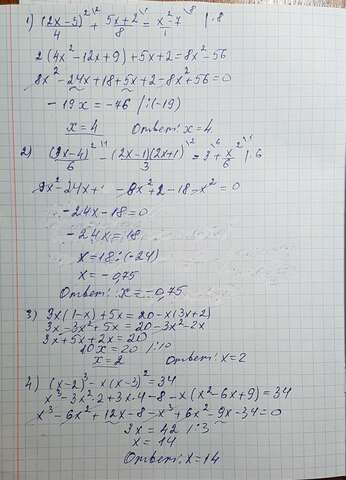 1) (2x-3)²/4 \2 + (5x+2)/8 \1 = (x²-7)/1 \8 |·8
2(4x²-12x+9)+5x+2=8x²-56
8x²-24x+18+5x+2-8x²+56=0
-19x=-76 |:(-19)
x=4 Ответ: x=4
2) (3x-4)²/6 \1 - (2x-1)(2x+1)/3 \2 = 3 \6 + x²/6 \1 |·6
-24x-18=0
-24x=18
x=18:(-24)
x=-0,75
Ответ: x=-0,75
3) 3x(1-x)+5x=20-x(3x+2)
3x-3x²+5x=20-3x²-2x
3x+5x+2x=20
10x=20 |:10
x=2 Ответ: x=2
4) (x-2)³-x(x-3)²=34
x³-3x²·2+3x·4-8-x(x²-6x+9)=34
x³-6x²+12x-8-x³+6x²-9x-34=0
3x=42 |:3
x=14
Ответ: x=14